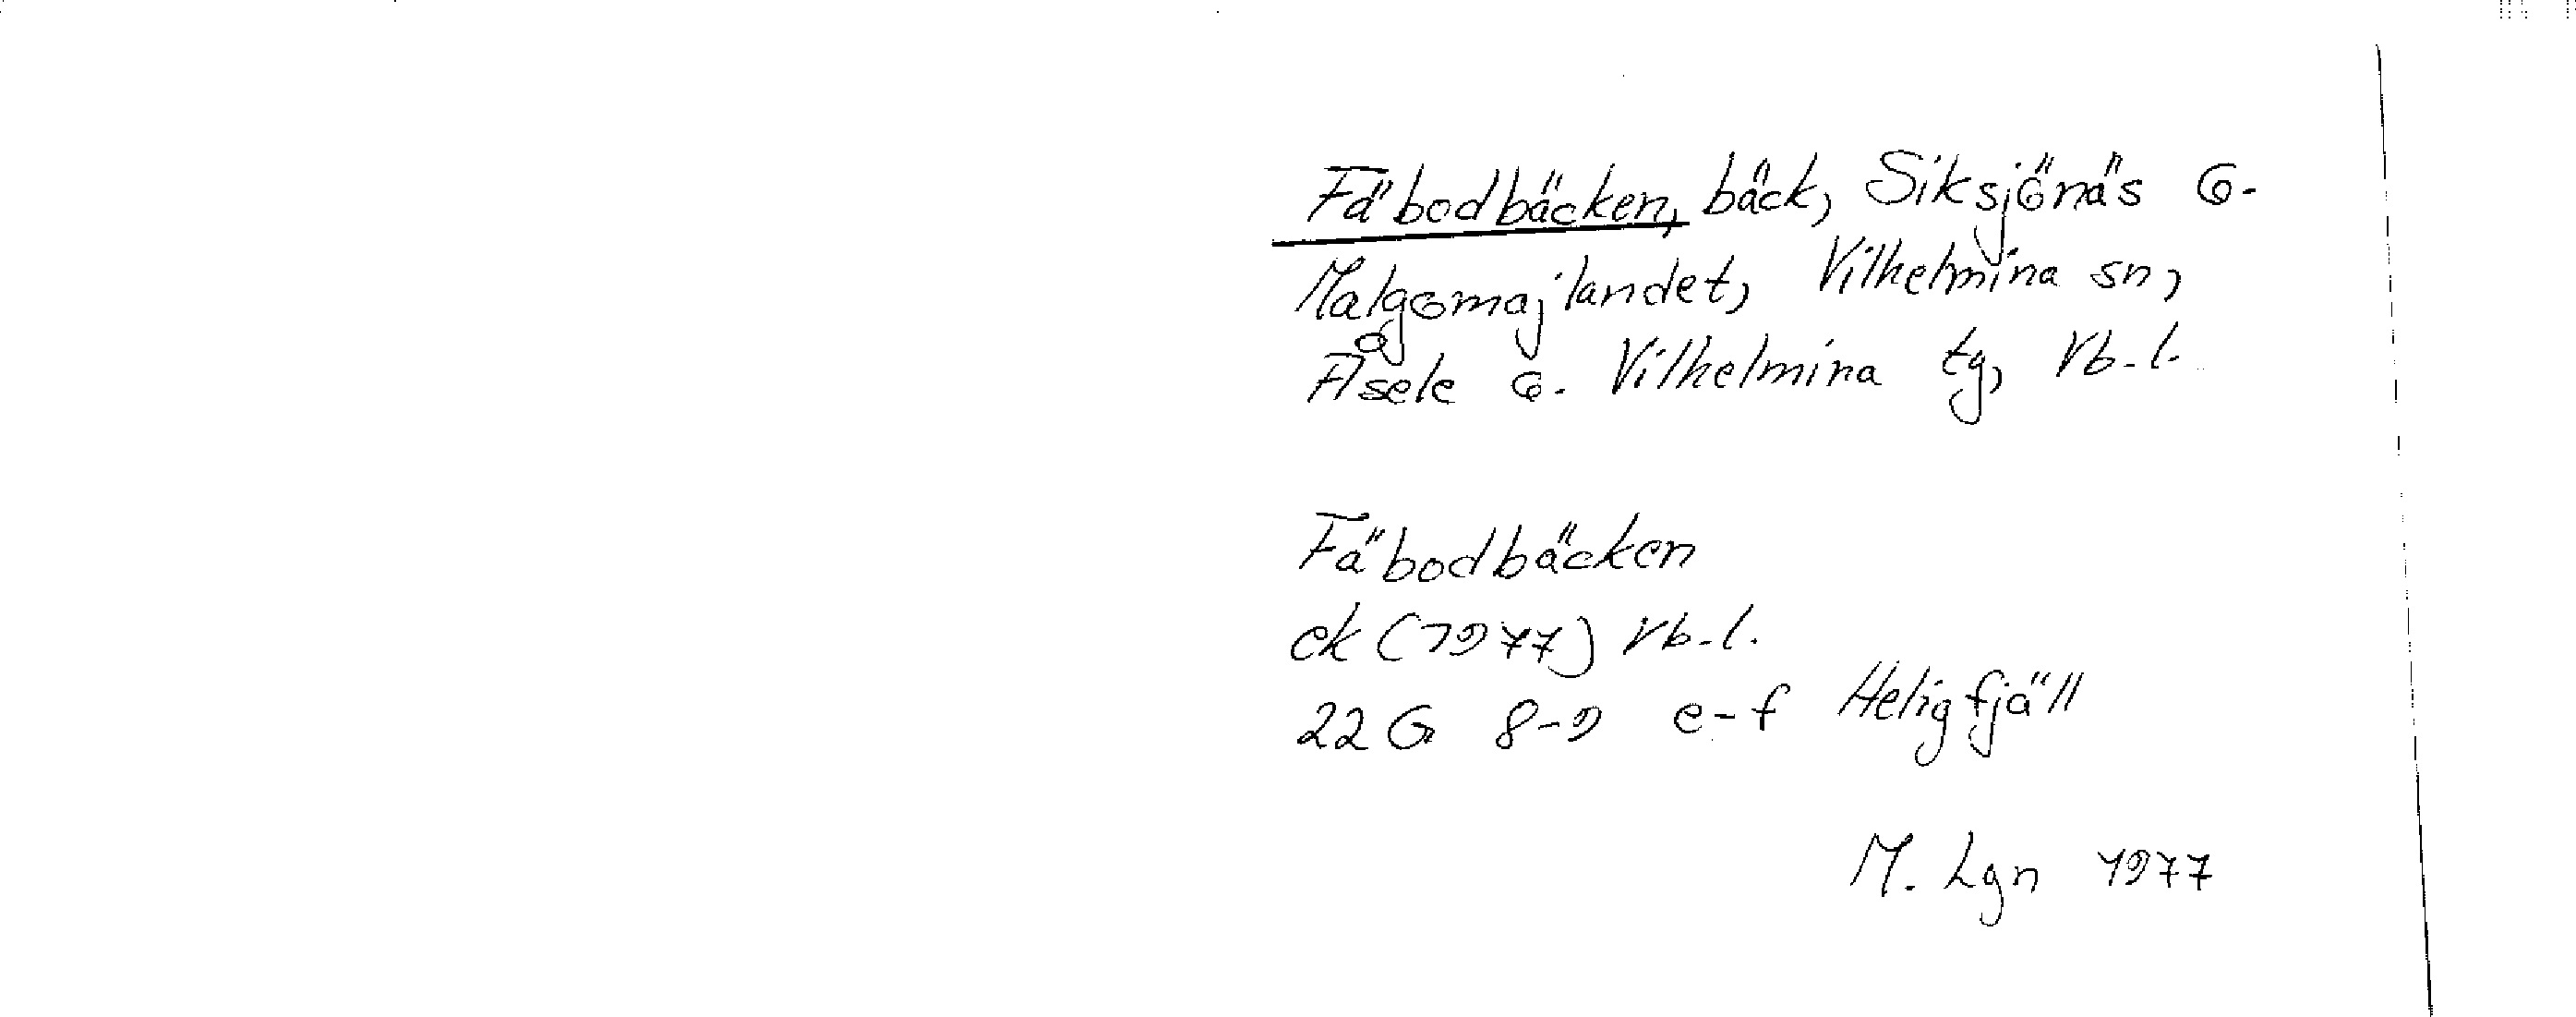 Fäbodbäcken, bäck, Siksjönäs o.
Malgomajlandet, Vilhelmina sn,
Åsele o. Vilhelmina tg, Vb. l.
Fäbodbäcken
ek (1977) Vb. l.
22 G 8-9 e-f Heligfjäll
M. Lgn 1977